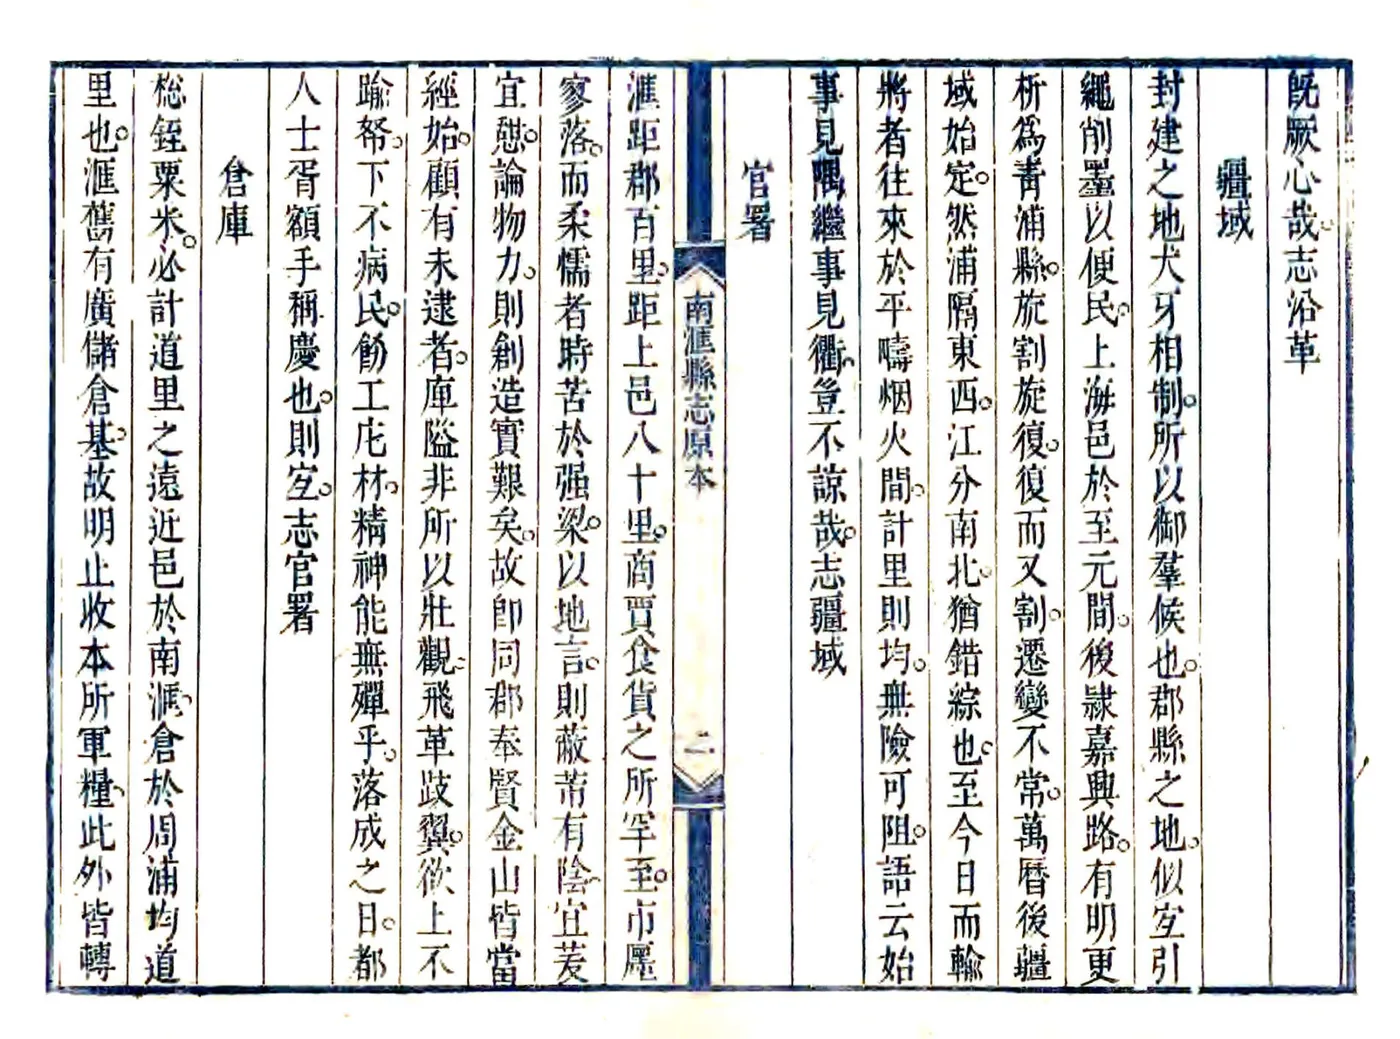 既厥心哉。志沿革
疆域
封建之地犬牙相制。所以御羣候也。郡縣之地。似宜引
繩削墨以便民。上海邑於至元間。後隷嘉興路。有明更
析爲青浦縣。旋割旋復。復而又割。遷變不常。萬曆後疆
域始定。然浦隔東西。江分南北。猶錯綜也。至今日而輸
將者往來於平疇烟火間。計里則均。無險可阻。語云始
事見隅繼事見衢。豈不諒哉。志疆域
官署
南滙縣志原本
二
滙距郡百里。距上邑八十里。商賈食貨之所罕至。市廛
寥落。而柔懦者時苦於强梁。以地言。則蔽芾有陰。宜茇
宜憇。論物力。則創造實艱矣。故卽同郡奉賢金山皆當
經始。顧有未逮者。庳隘非所以壯觀。飛革跂翼。欲上不
踰帑。下不病民。飭工庀材。精神能無殫乎。落成之日。都
人士胥額手稱慶也。則宜。志官署
倉庫
總銍粟米。必計道里之遠近邑於南滙。倉於周浦均道
里也。滙舊有廣儲倉基。故明止收本所軍糧。此外皆轉